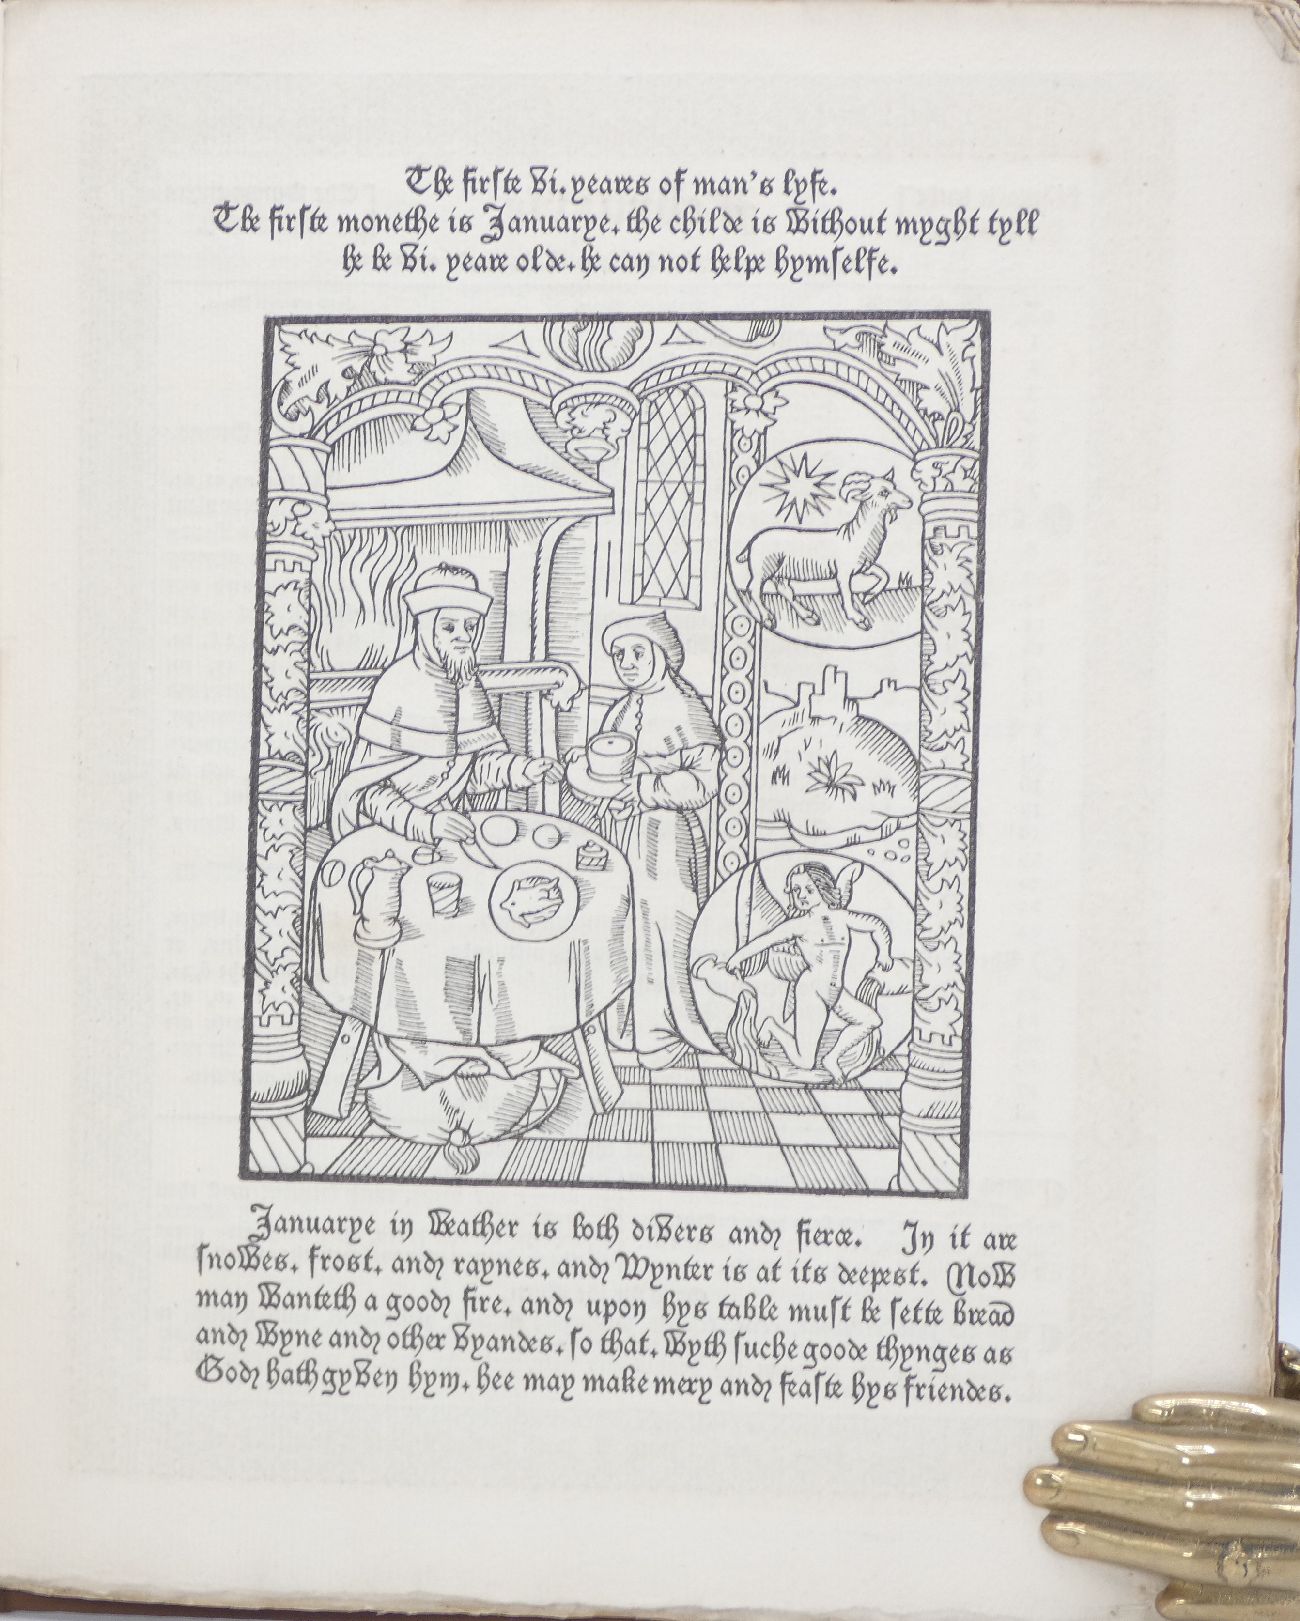 The firſte vi. yeares of man's lyfe.
The firſte monethe is Januarye, the childe is without myght tyll
he be vi. yeare olde, he can not helpe hymſelfe.
Januarye in weather is both divers and fierce. In it are
ſnowes, froſt, and raynes, and Wynter is at its deepest. Now
man wanteth a good fire, and upon hys table muſt be ſette bread
and wyne and other vyandes, ſo that, wyth ſuche goode thynges as
God hath gyven hym, hee may make mery and feaſte hys friendes.